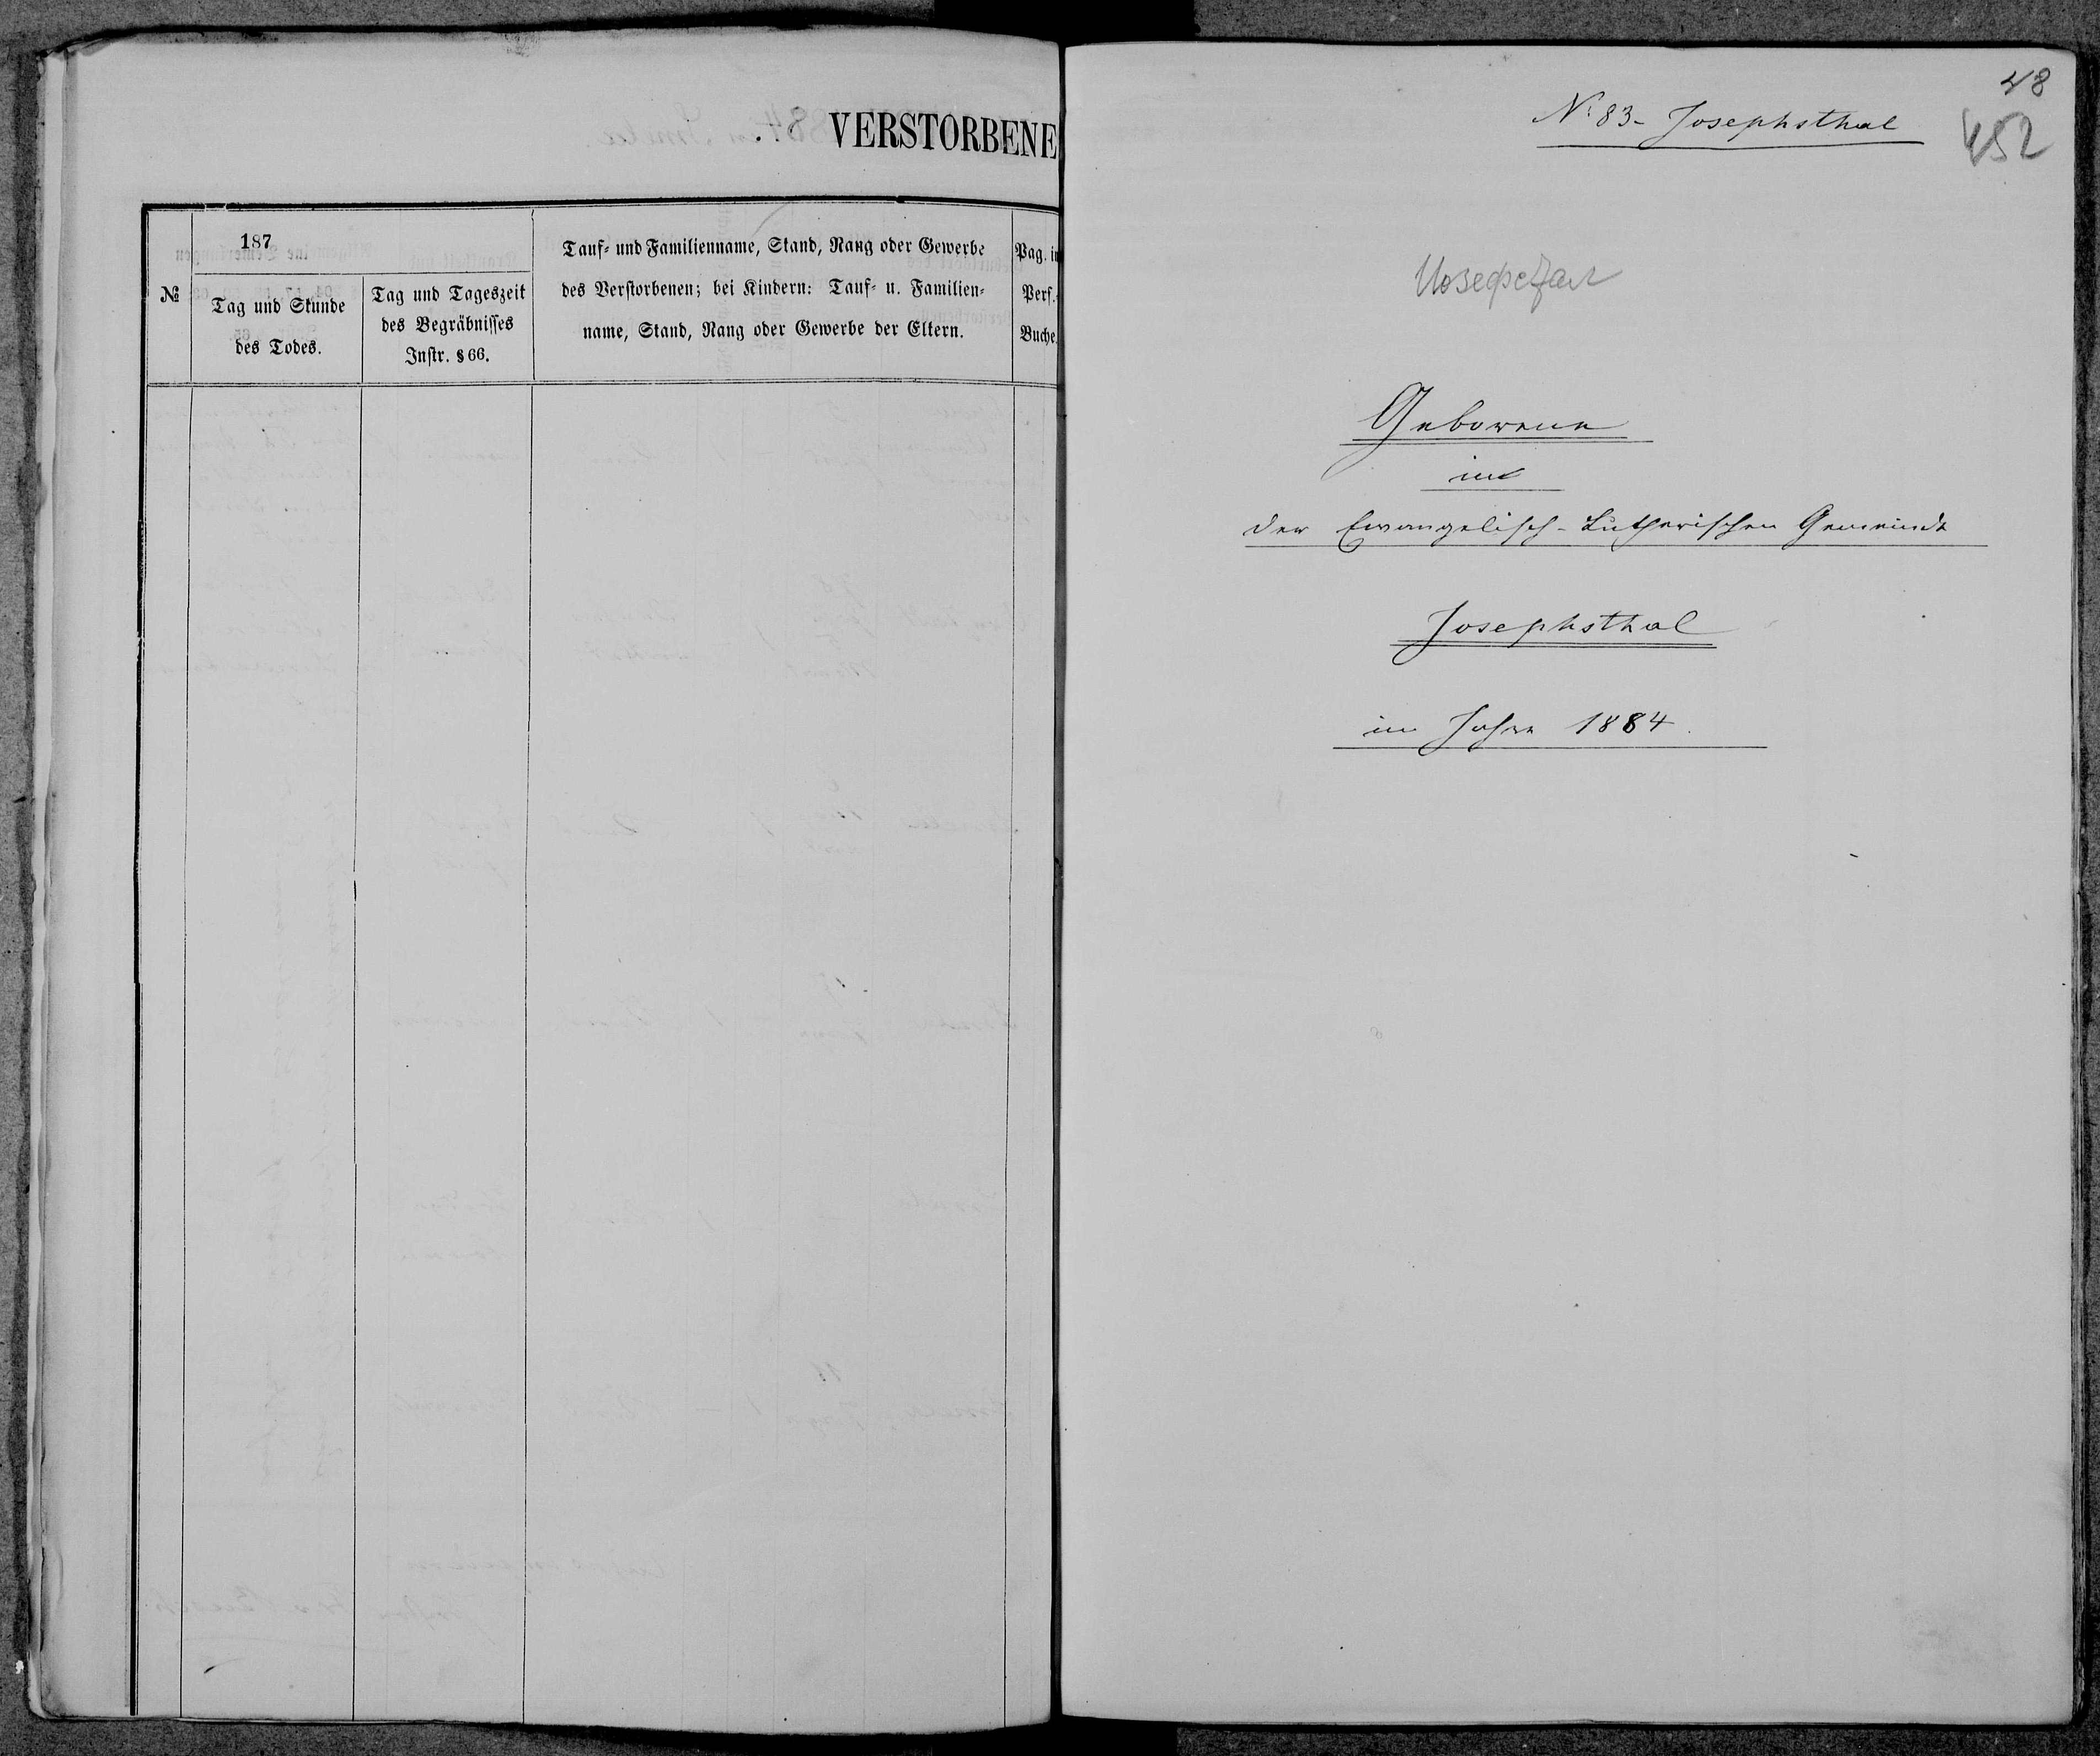 VERSTORBENE
№
187
Tag und Stunde
des Todes.
Tag und Tageszeit
des Begräbnisses
Instr. § 66.
Tauf- und Familienname, Stand, Rang oder Gewerbe
des Verstorbenen; bei Kindern: Tauf- u. Familien-
name, Stand, Rang oder Gewerbe der Eltern.
Pag. in
Pers.-
Buche.
48
№ 83- Josephsthal
452
Geborene
in
der Evangelisch-Lutherischen Gemeinde
Josephsthal
im Jahre 1884.